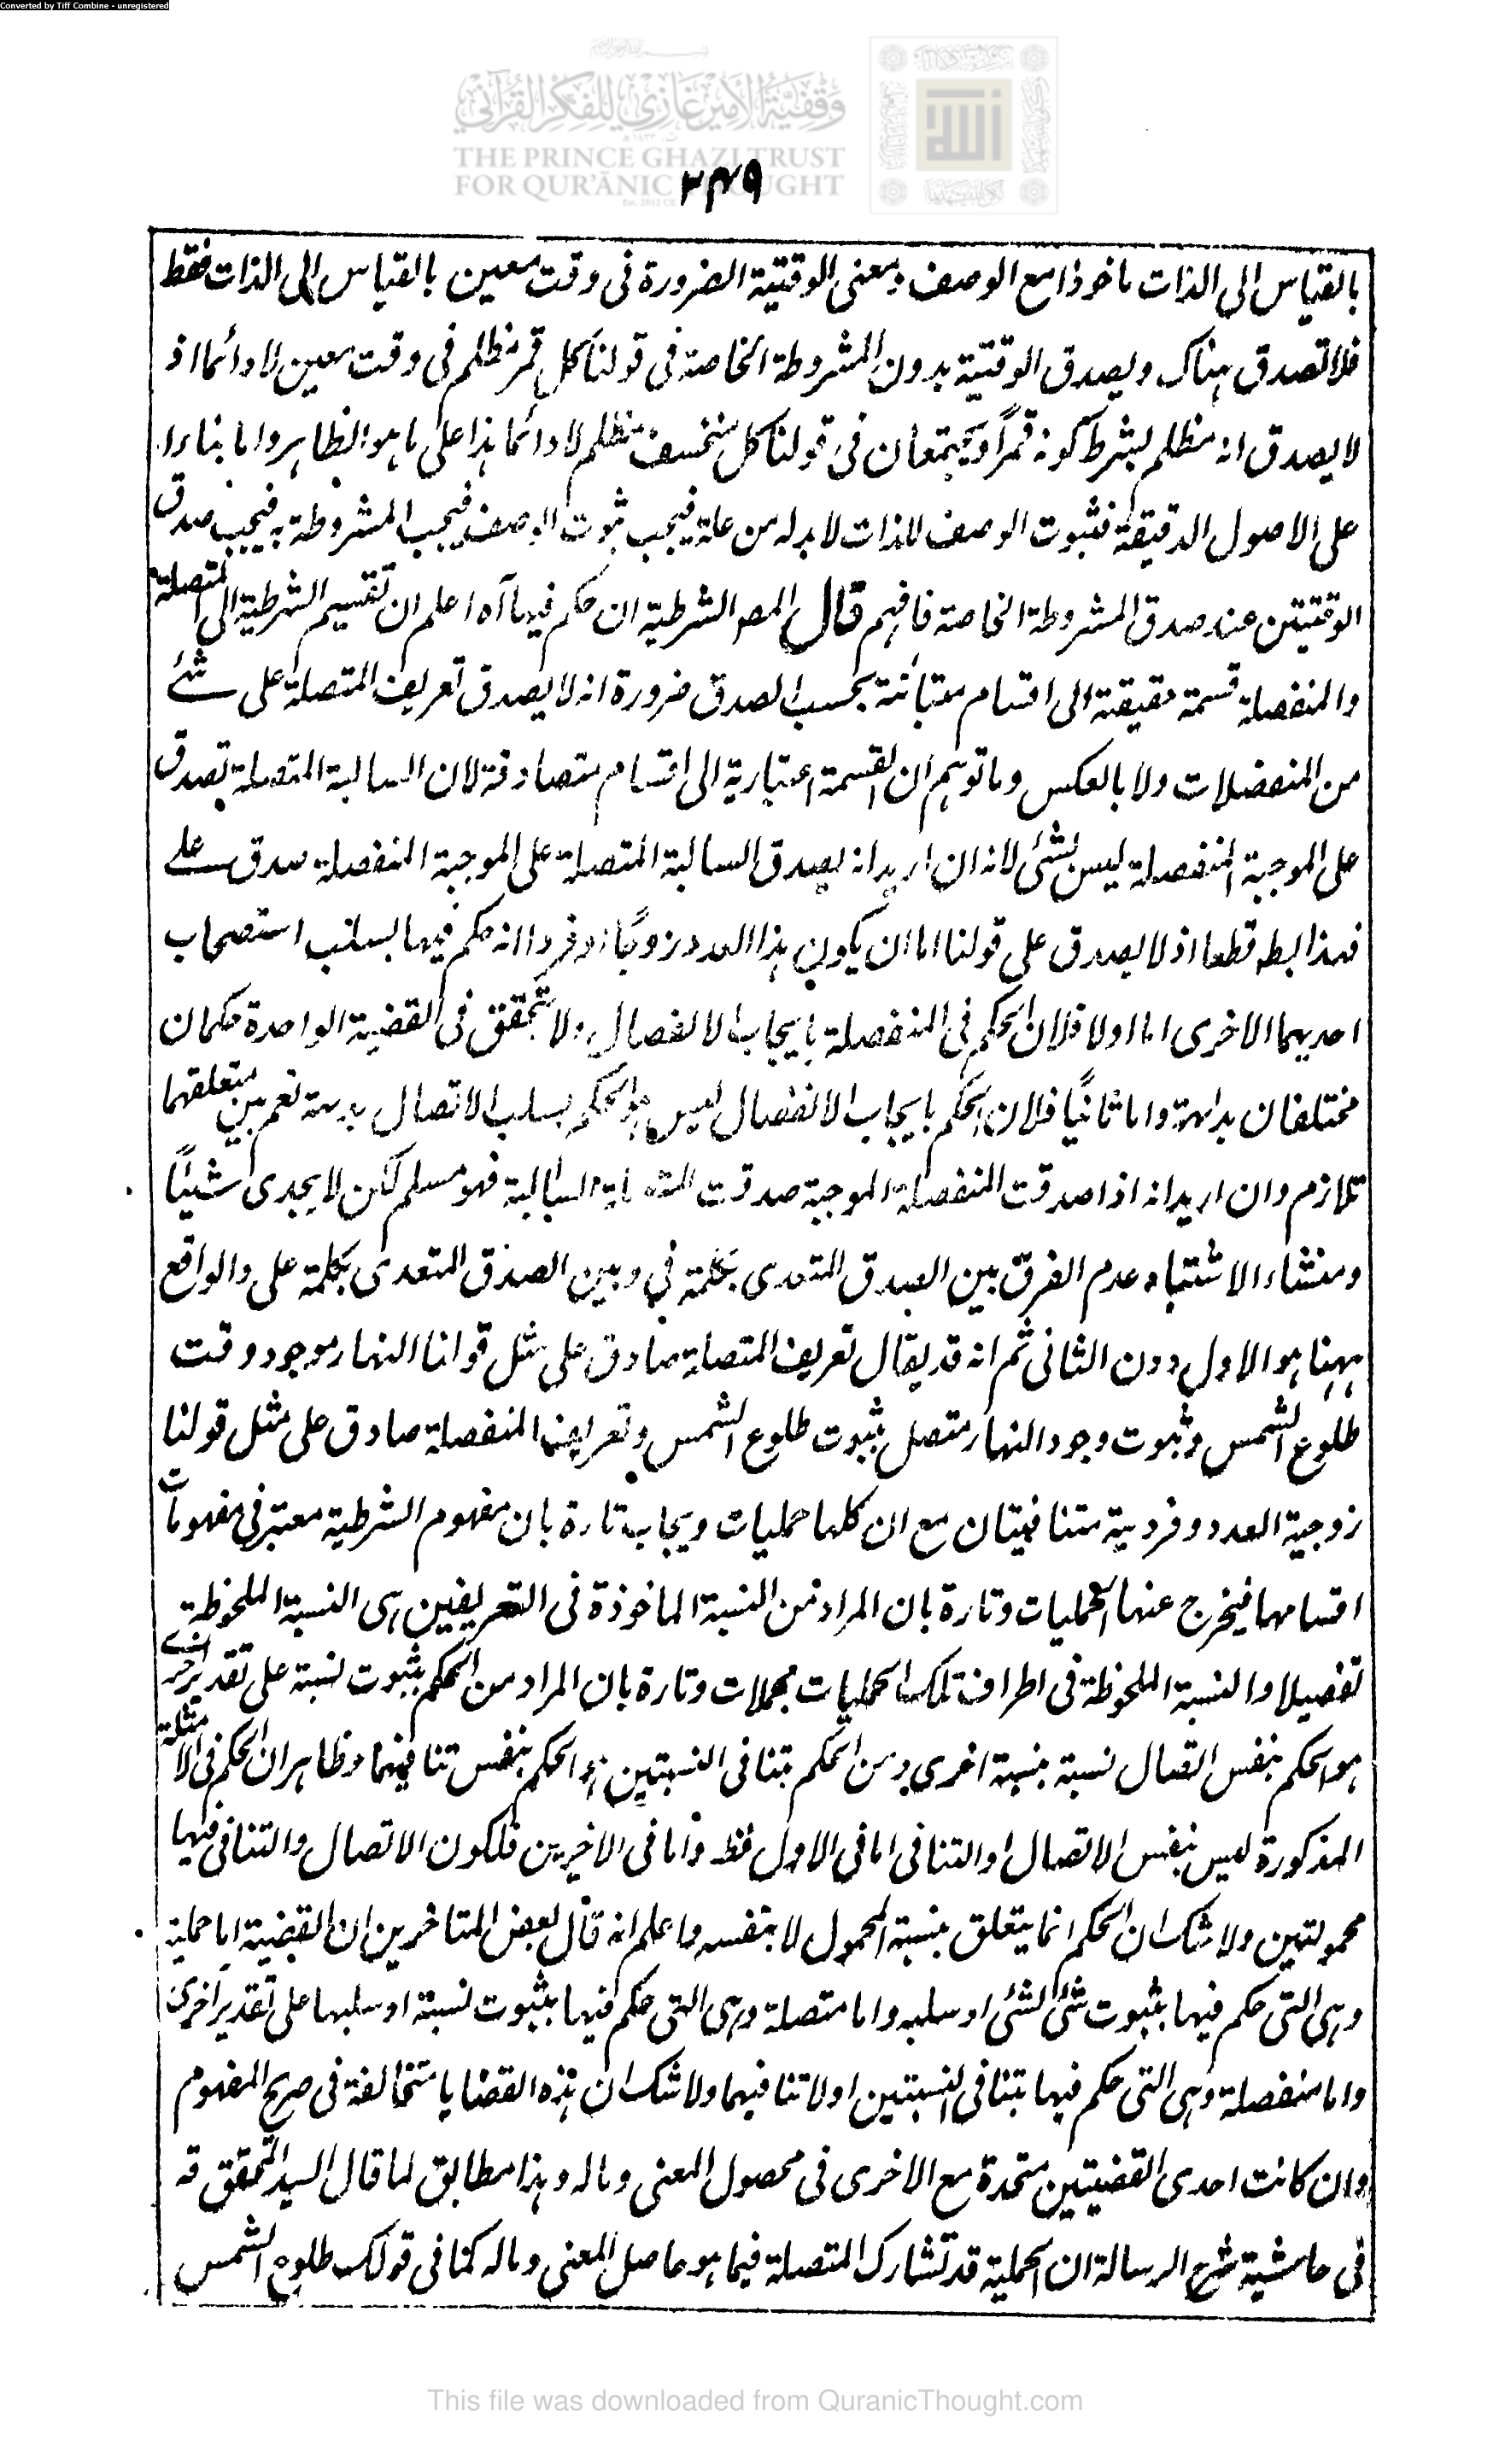 Converted by Tiff Combine - unregistered
وقفية الأمير غازي للفكر القرآني
THE PRINCE GHAZI TRUST
FOR QUR'ĀNIC THOUGHT
٢٣٩
بالقياس الى الذات ماخوذا مع الوصف ومعنى الوقتية الضرورة فى وقت معين بالقياس الى الذات فقط
فلا تصدق هناك ويصدق الوقتية بدون المشروطة الخاصة فى قولنا كل قمر مظلم فى وقت معين لا دائما اذ
لا يصدق انه مظلم بشرط كونه قمراً ويجتمعان فى قولنا كل منخسف مظلم لا دائما هذا على ما هو الظاهر واما بناءا
على الاصول الدقيقة فثبوت الوصف للذات لا بد له من علة فيجب ثبوت الوصف فيجب المشروطة به فيجب صدق
الوقتيتين عند صدق المشروطة الخاصة فافهم قال المصـ الشرطية ان حكم فيها آه اعلم ان تقسيم الشرطية الى المتصلة
والمنفصلة قسمة حقيقية الى اقسام متبائنة بحسب الصدق ضرورة انه لا يصدق تعريف المتصلة على شئ
من المنفصلات ولا بالعكس وما توهم ان القسمة اعتبارية الى اقسام متصادقة لان السالبة المتصلة تصدق
على الموجبة المنفصلة ليس بشئ لانه ان اريد انه يصدق السالبة المتصلة على الموجبة المنفصلة صدق على
فهذا بط قطعا اذ لا يصدق على قولنا اما ان يكون هذا العدد زوجًا او فردا انه حكم فيها بسلب استصحاب
احديهما الاخرى اما اولا فلان الحكم فى المنفصلة بايجاب الانفصال ولا يتحقق فى القضية الواحدة حكمان
مختلفان بداهة واما ثانيًا فلان الحكم بايجاب الانفصال ليس هو الحكم بسلب الاتصال بديهة نعم بين متعلقهما
تلازم وان اريد انه اذا صدقت المنفصلة الموجبة صدقت المتصلة السالبة فهو مسلم لكن لا يجدى شيئًا
ومنشاء الاشتباه عدم الفرق بين الصدق المتعدى بكلمة فى وبين الصدق المتعدى بكلمة على والواقع
ههنا هو الاول دون الثانى ثم انه قد يقال تعريف المتصلة صادق على مثل قولنا النهار موجود وقت
طلوع الشمس وثبوت وجود النهار متصل بثبوت طلوع الشمس وتعريف المنفصلة صادق على مثل قولنا
زوجية العدد وفردية متنافيتان مع ان كلها حمليات ويجاب تارة بان مفهوم الشرطية معتبر فى مفهومات
اقسامها فيخرج عنها الحمليات وتارة بان المراد من النسبة الماخوذة فى التعريفين هى النسبة الملحوظة
تفصيلا والنسبة الملحوظة فى اطراف تلك الحمليات مجملات وتارة بان المراد من الحكم بثبوت نسبة على تقدير اخرى
هو الحكم بنفس اتصال نسبة بنسبة اخرى ومن الحكم بتنافى النسبتين هو الحكم بنفس تنافيهما وظاهر ان الحكم فى الامثلة
المذكورة ليس بنفس الاتصال او التنافى اما فى الاول فظ واما فى الاخيرين فلكون الاتصال والتنافى فيها
محمولتين ولا شك ان الحكم انما يتعلق بنسبة المحمول لا بنفسه واعلم انه قال بعض المتاخرين ان القضية اما حملية
وهى التى حكم فيها بثبوت شئ لشئ او سلبه واما متصلة وهى التى حكم فيها بثبوت نسبة او سلبها على تقدير اخرى
واما منفصلة وهى التى حكم فيها بتنافى النسبتين او لا تنافيهما ولا شك ان هذه القضايا متخالفة فى صريح المفهوم
وان كانت احدى القضيتين متحدة مع الاخرى فى محصول المعنى وماله وهذا مطابق لما قال السيد المحقق قه
فى حاشية شرح الرسالة ان الحملية قد تشارك المتصلة فيما هو حاصل المعنى وماله كما فى قولك طلوع الشمس
This file was downloaded from QuranicThought.com